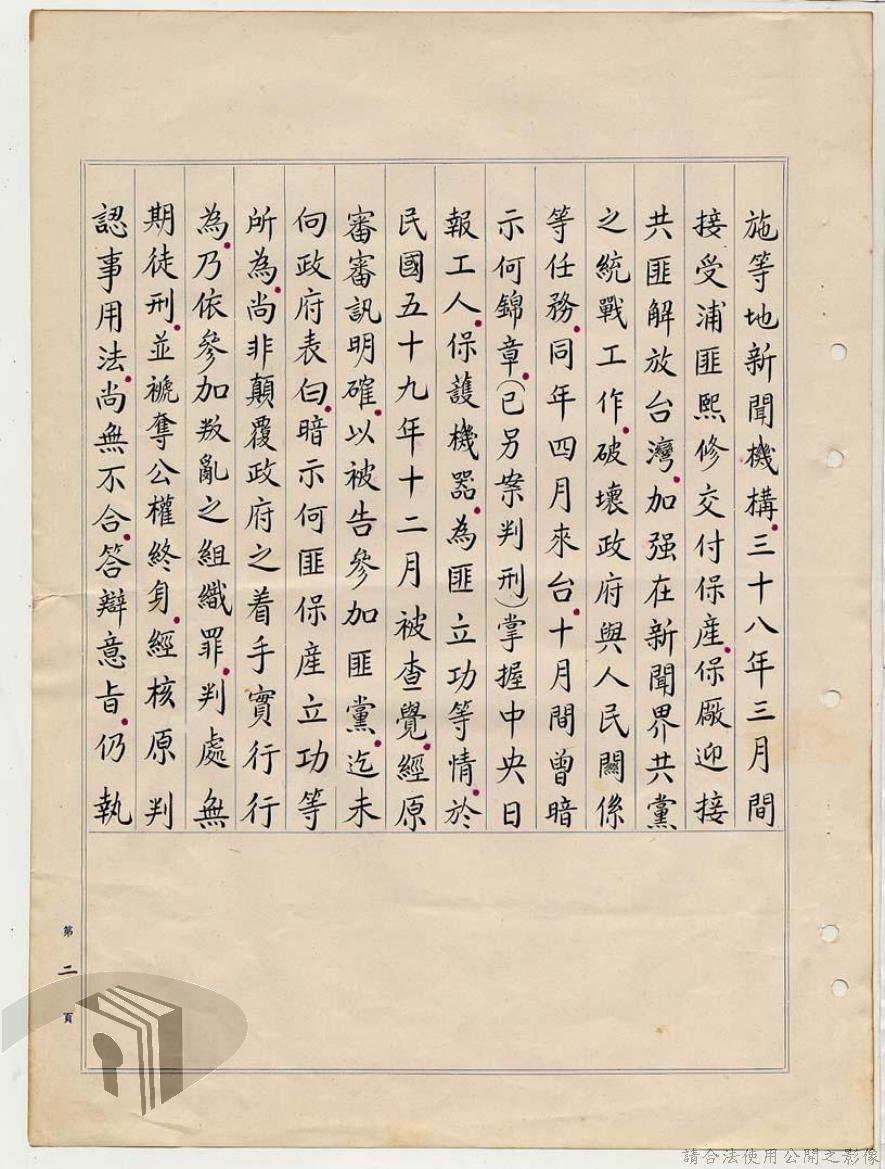 施等地新聞機構。三十八年三月間
接受浦匪熙修交付保產。保厰迎接
共匪解放台灣。加强在新聞界共黨
之統戰工作。破壞政府與人民關係
等任務。同年四月來台。十月間曾暗
示何錦章。(已另案判刑)掌握中央日
報工人。保護機器。為匪立功等情。於
民國五十九年十二月被查覺。經原
審審訊明確。以被告參加匪黨。迄未
向政府表白。暗示何匪保產立功等
所為。尚非顛覆政府之着手實行行
為。乃依參加叛亂之組織罪。判處無
期徒刑。並褫奪公權終身。經核原判
認事用法。尚無不合。答辯意旨。仍執
第二頁
請合法使用公開之影像